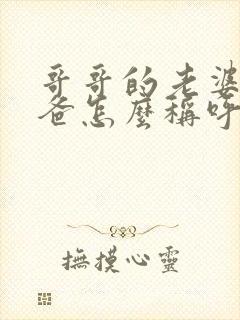 哥哥的老婆
爸怎麼稱呼
撫摸心靈